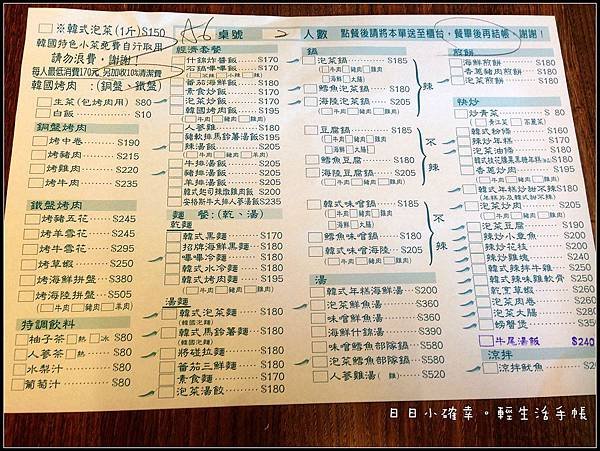 ※韓式泡菜(1斤)$150
韓國特色小菜免費自行取用
請勿浪費，謝謝！
每人最低消費170元,另加收10%清潔費
韓國烤肉 :(銅盤、鐵盤)
生菜(包烤肉用) $80
白飯 $10
銅盤烤肉
烤中卷 $190
烤豬肉 $215
烤雞肉 $220
烤牛肉 $235
鐵盤烤肉
烤豬五花 $245
烤羊雪花 $245
烤牛雪花 $295
烤草蝦 $250
烤海鮮拼盤 $380
烤海陸拼盤 $505
(□牛肉 □豬肉 □羊肉)
特調飲料
柚子茶(□熱 □冰) $80
人參茶(熱) $80
水梨汁 $80
葡萄汁 $80
A-6 桌號
2 人數 點餐後請將本單送至櫃台，餐畢後再結帳，謝謝！
經濟套餐
什錦炒醬飯 $170
石鍋嗶醬飯 $170
番茄海鮮飯 $180
素食炒飯 $170
泡菜炒飯 $170
(□牛肉 □豬肉 □雞肉)
人參雞 $180
豬軟排馬鈴薯湯飯 $195
辣湯飯 $205
(□牛肉 □豬肉 □雞肉)
牛排湯飯 $205
豬排湯飯 $205
羊排湯飯 $205
韓式起司辣燉雞肉飯 $200
安格斯牛大排人蔘湯飯 $235
麵 餐:(乾、湯)
乾麵
韓式黑麵 $170
招牌海鮮黑麵 $180
嗶嗶冷麵 $180
韓式水冷麵 $180
韓式烤肉麵 $195
(□牛肉 □豬肉 □雞肉)
湯麵
韓式泡菜麵 $180
(韓國泡麵)
韓式馬鈴薯麵 $180
(韓國泡麵)
將碰拉麵 $180
番茄三鮮麵 $180
素食麵 $170
泡菜湯餃 $180
鍋
泡菜鍋 $185
(□牛肉 □豬肉 □雞肉
□海鮮)
鱈魚泡菜鍋 $185
海陸泡菜鍋 $205
(□牛肉 □豬肉 □雞肉)
辣
豆腐鍋 $185
(□牛肉 □豬肉 □雞肉
□海鮮 □大腸)
鱈魚豆腐 $180
海陸豆腐鍋 $205
(□牛肉 □豬肉 □雞肉)
不辣
韓式味噌鍋 $185
(□牛肉 □豬肉 □雞肉
□海鮮 □大腸)
鱈魚味噌鍋 $180
韓式味噌海陸 $205
(□牛肉 □豬肉 □雞肉)
不辣
湯
韓式年糕海鮮湯 $200
泡菜鮮魚湯 $360
味噌鮮魚湯 $360
海鮮什錦湯 $390
味噌鱈魚部隊鍋 $580
泡菜鱈魚部隊鍋 $580
人參雞湯 (雞) $520
煎餅
海鮮煎餅 $180
香蔥豬肉煎餅 $180
泡菜煎餅 $180
快炒
炒青菜 $80
韓式粉條 $160
辣炒年糕 $170
泡菜油條 $180
香蔥炒肉 $195
韓式年糕炒甜不辣 $180
泡菜炒肉 $205
(□牛肉 □豬肉 □雞肉)
泡菜豆腐 $190
辣炒小章魚 $200
辣炒花枝 $200
辣炒雞塊 $240
韓式辣拌牛雜 $250
韓式辣味雞軟骨 $250
乾烹草蝦 $250
泡菜肉卷 $260
泡菜大腸 $280
螃蟹煲
牛尾湯飯 $240
涼拌
涼拌魷魚
日日小確幸。輕生活手帳